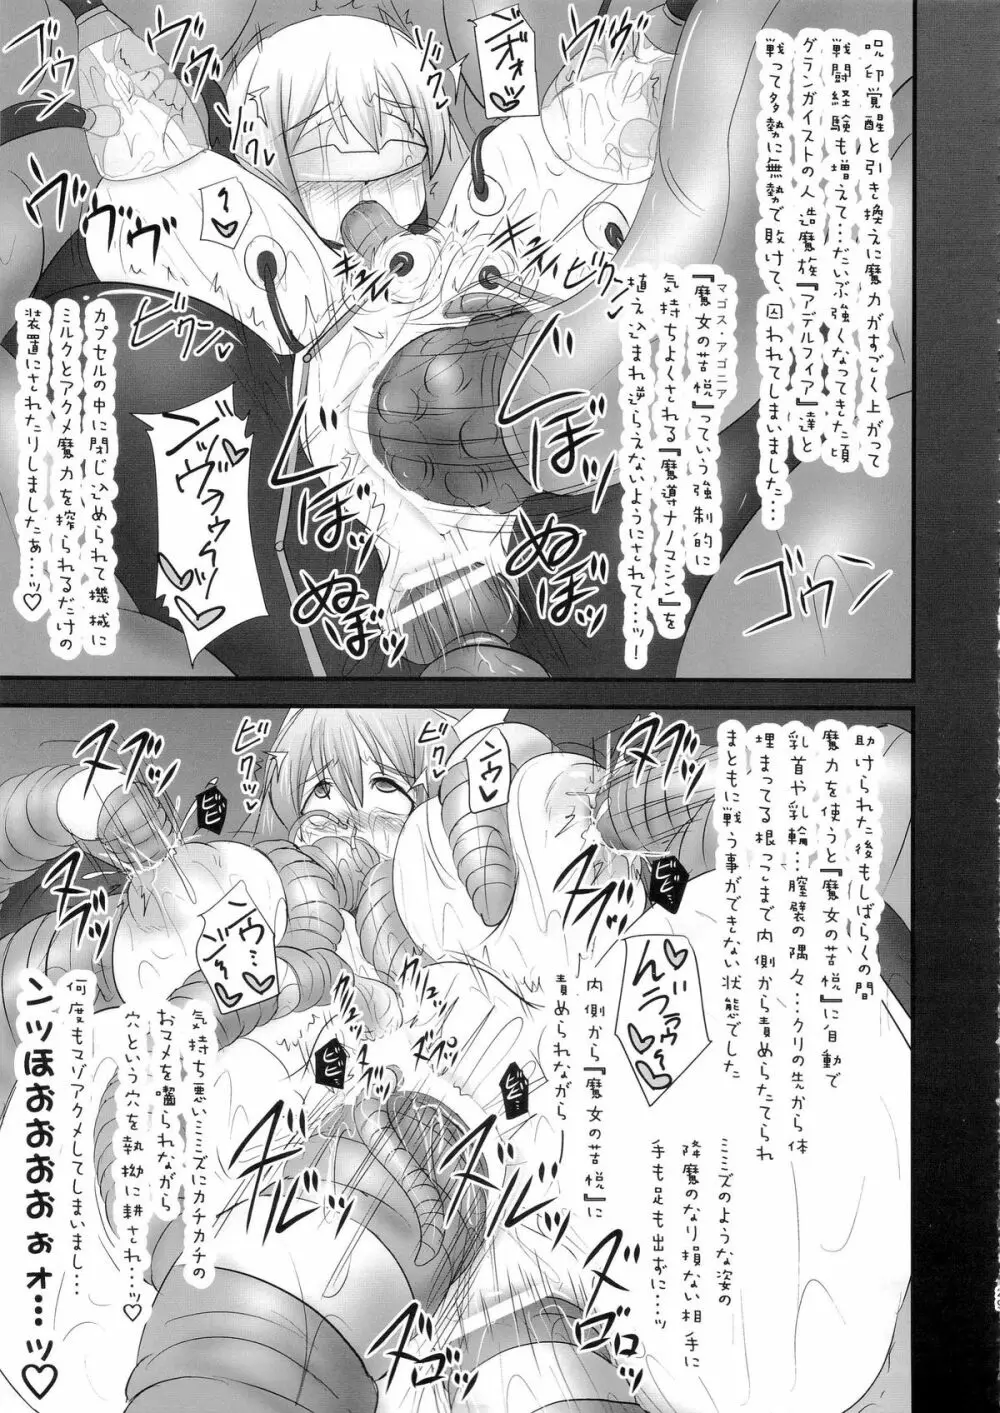 呪印覚醒と引き換えに魔力がすごく上がって
戦闘経験も増えて…だいぶ強くなってきた頃
グランガイストの人造魔族『アデルフィア』達と
戦って多勢に無勢で敗けて、囚われてしまいました…
マゴス・アゴニア
『魔女の苦悦』っていう強制的に
気持ちよくされる『魔導ナノマシン』を
植え込まれ逆らえないようにされて…ッ!
ンオォッ♡
ビクッ
ビクッ
ゾクッ
ゾクゾクッ
ビクンッ
ビクンッ
ゴウン
ゴウン
ヴヴヴッ
ヴヴヴ
ぬぼッ
ぬぼッ
ぬぼッ
ぬぼッ
ンッヴヲゥゥッ♡
カプセルの中に閉じ込められて機械に
ミルクとアクメ魔力を搾られるだけの
装置にされたりしましたぁ…ッ♡
助けられた後もしばらくの間
魔力を使うと『魔女の苦悦』に自動で
乳首や乳輪…膣襞の隅々…クリの先から体
埋まってる根っこまで内側から責めらたてられ
まともに戦う事ができない状態でした
ミミズのような姿の
降魔のなり損ない相手に
手も足も出ずに…ッ
内側から『魔女の苦悦』に
責められながら
気持ち悪いミミズにカチカチの
おマメを嚙られながら
穴という穴を執拗に耕され…ッ♡
何度もマゾアクメしてしまいまし…
ンッほぉぉぉぉォ…ッ♡
ンウッ♡
ヌヅッ
ヌヅッ
ヌヅッ
ヌヅッ
ビクッ
ビクッ
ビビッ
ビビッ
ビビッ
ビビッ
ズボッ
ズボッ
ズボッ